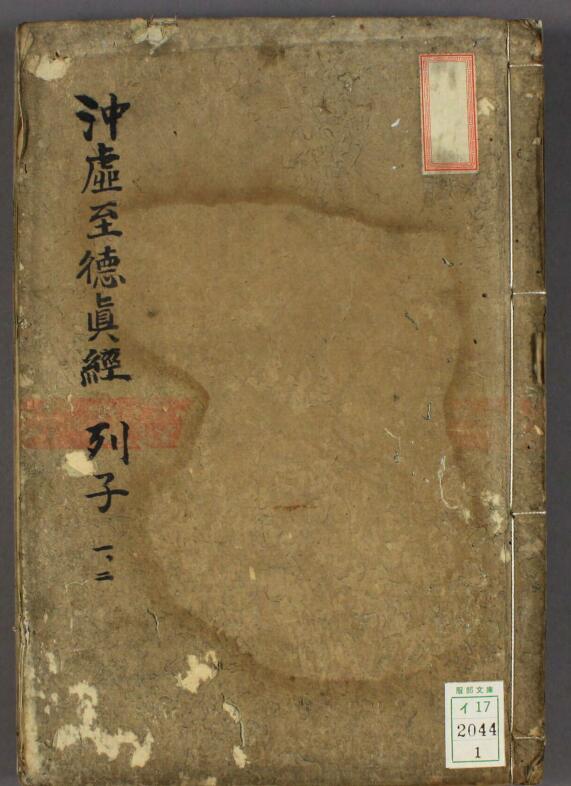 沖虛至德眞經 列子 一、二
服部文庫
イ17
2044
1